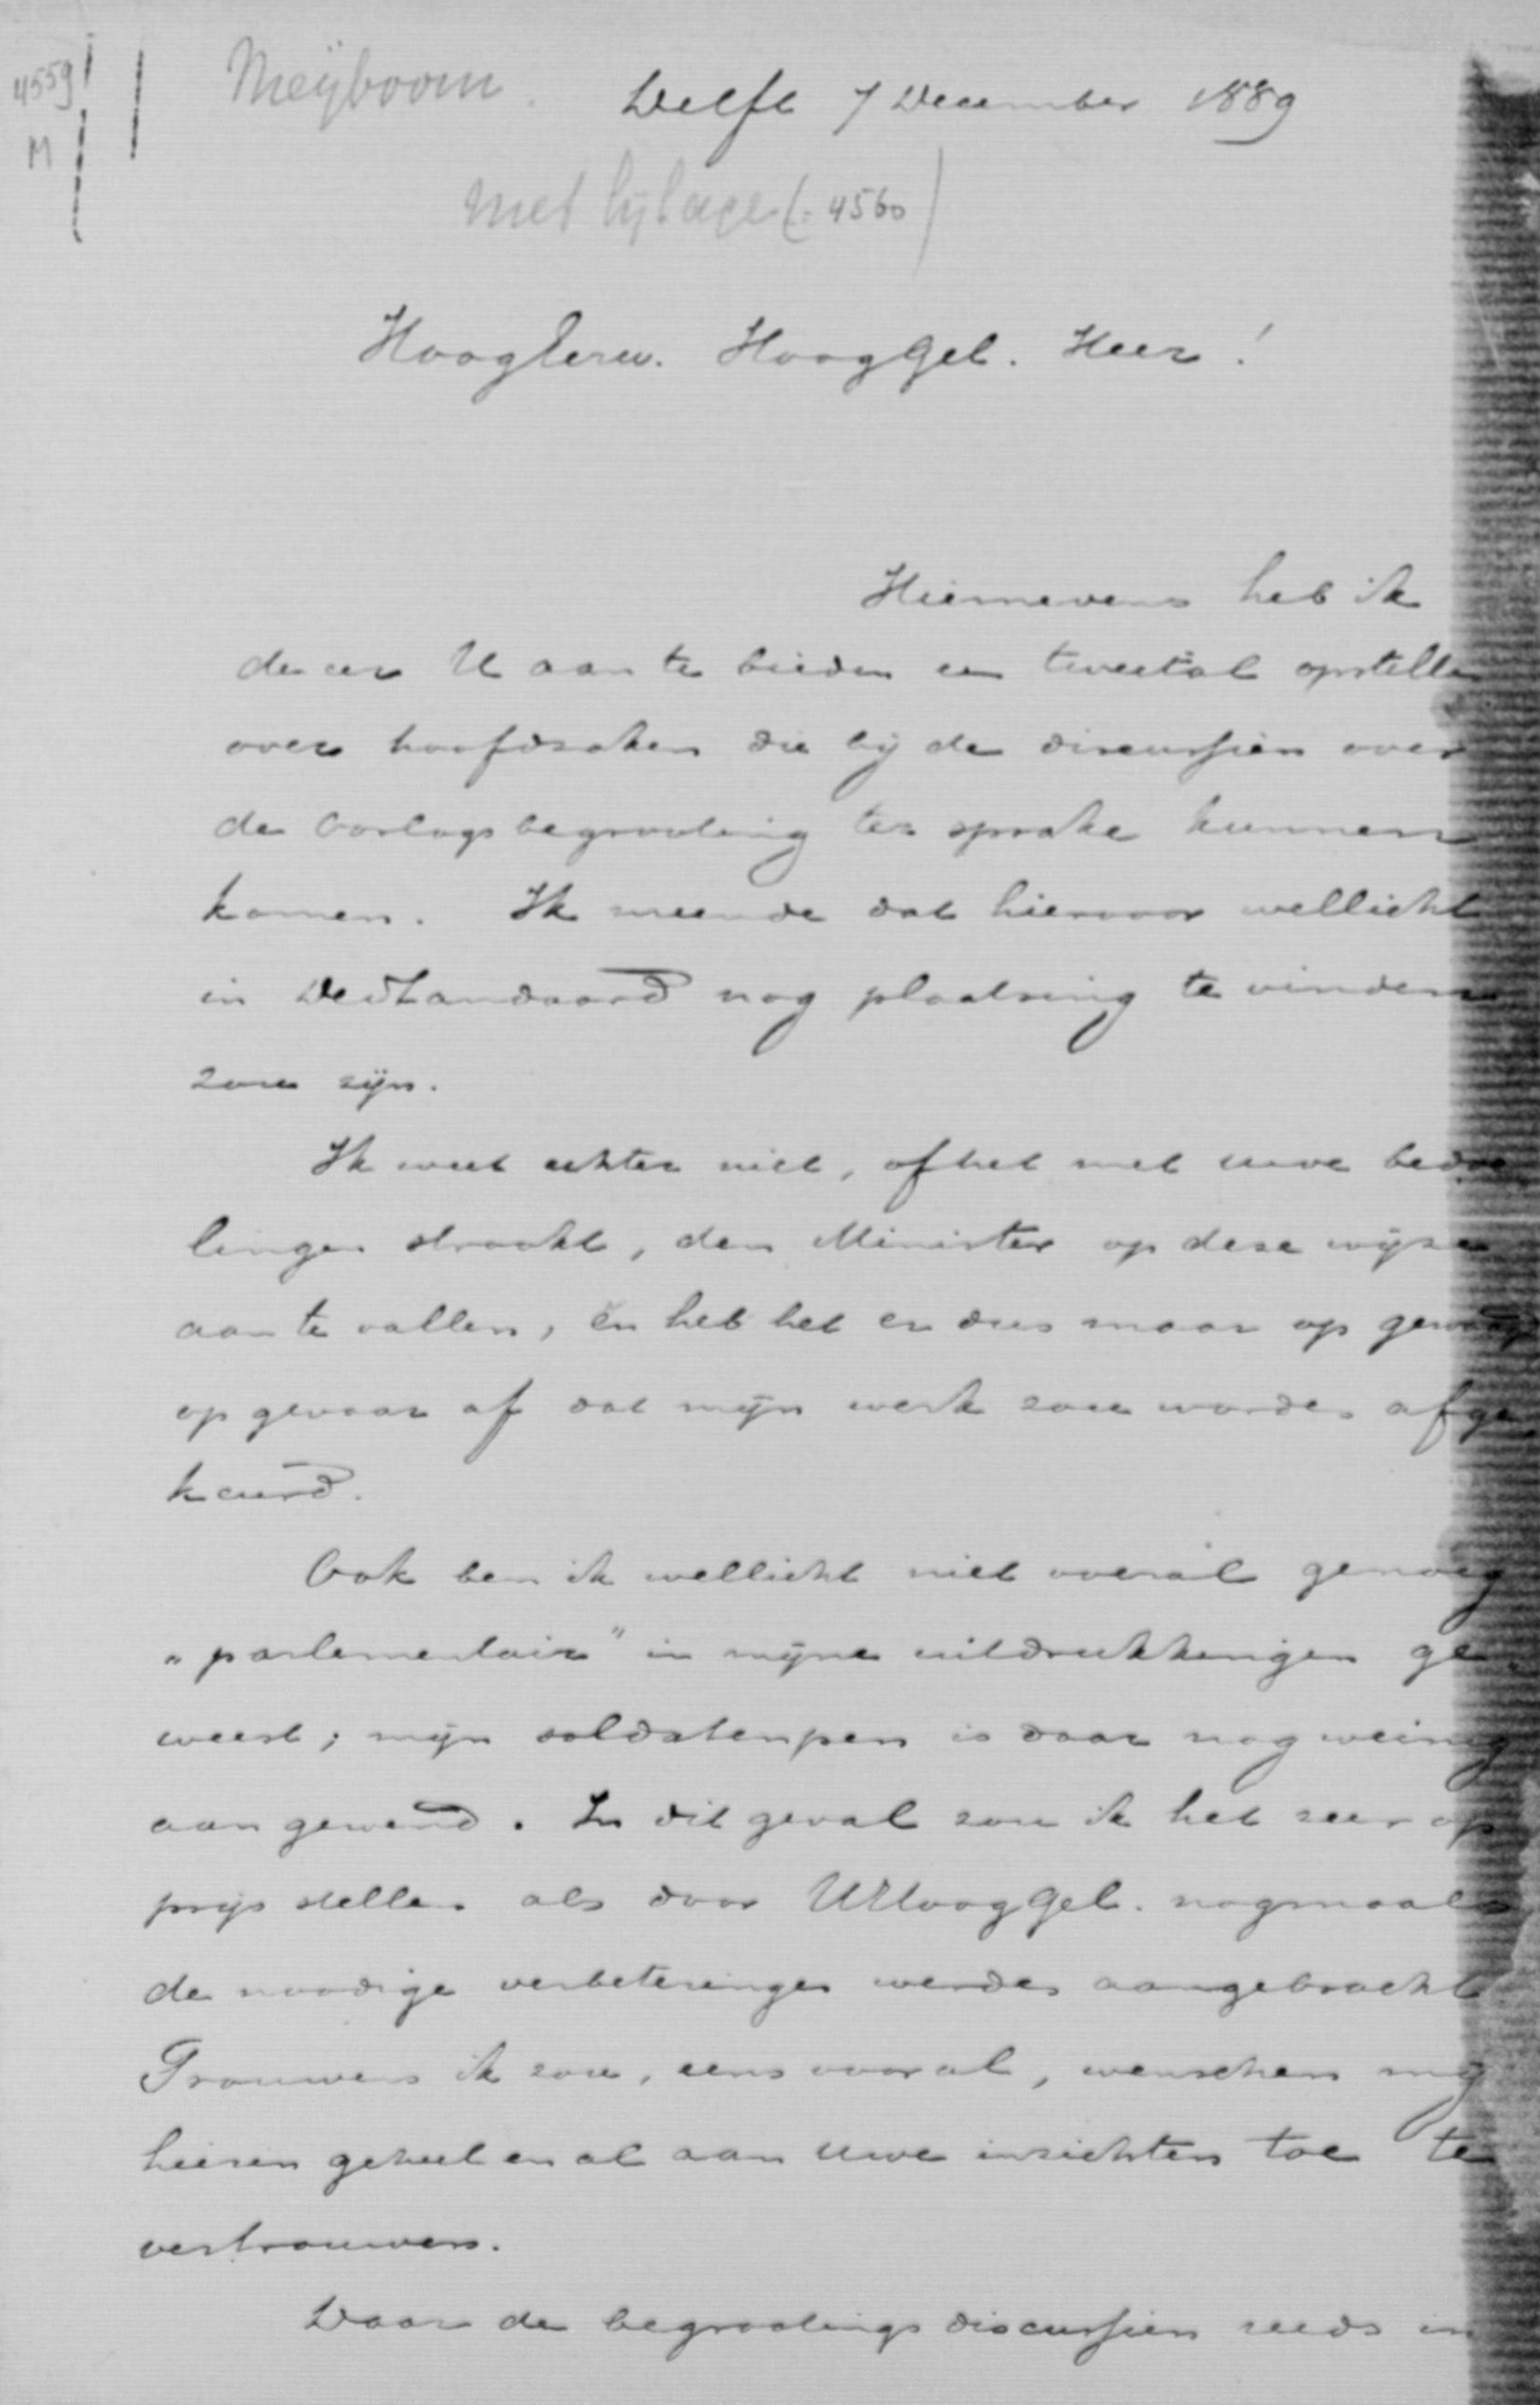 4559
M
Meijboom.
Delft 7 December 1889
met bijlage (= 4560)
HoogEerw. HoogGel. Heer!
Hiernevens heb ik
de eer U aan te bieden een tweetal opstellen
over hoofdzaken die bij de discussiën over
de Oorlogsbegrooting ter sprake kunnen
komen. Ik meende dat hiervoor wellicht
in De Standaard nog plaatsing te vinden
zou zijn.
Ik weet echter niet, of het met uwe bedoe
lingen strookt, den Minister op deze wijze
aan te vallen, en heb het er dus maar op gewaagd
op gevaar af dat mijn werk zou worden afge
keurd.
Ook ben ik wellicht niet overal genoeg
„parlementair" in mijne uitdrukkingen ge
weest; mijn soldatenpen is daar nog weinig
aan gewend. In dit geval zou ik het zeer op
prijs stellen als door UHoogGel. nogmaals
de noodige verbeteringen werden aangebracht
Trouwens ik zou, eens vooral, wenschen mij
hierin geheel en al aan uwe inzichten toe te
vertrouwen.
Daar de begrootings discussiën reeds in